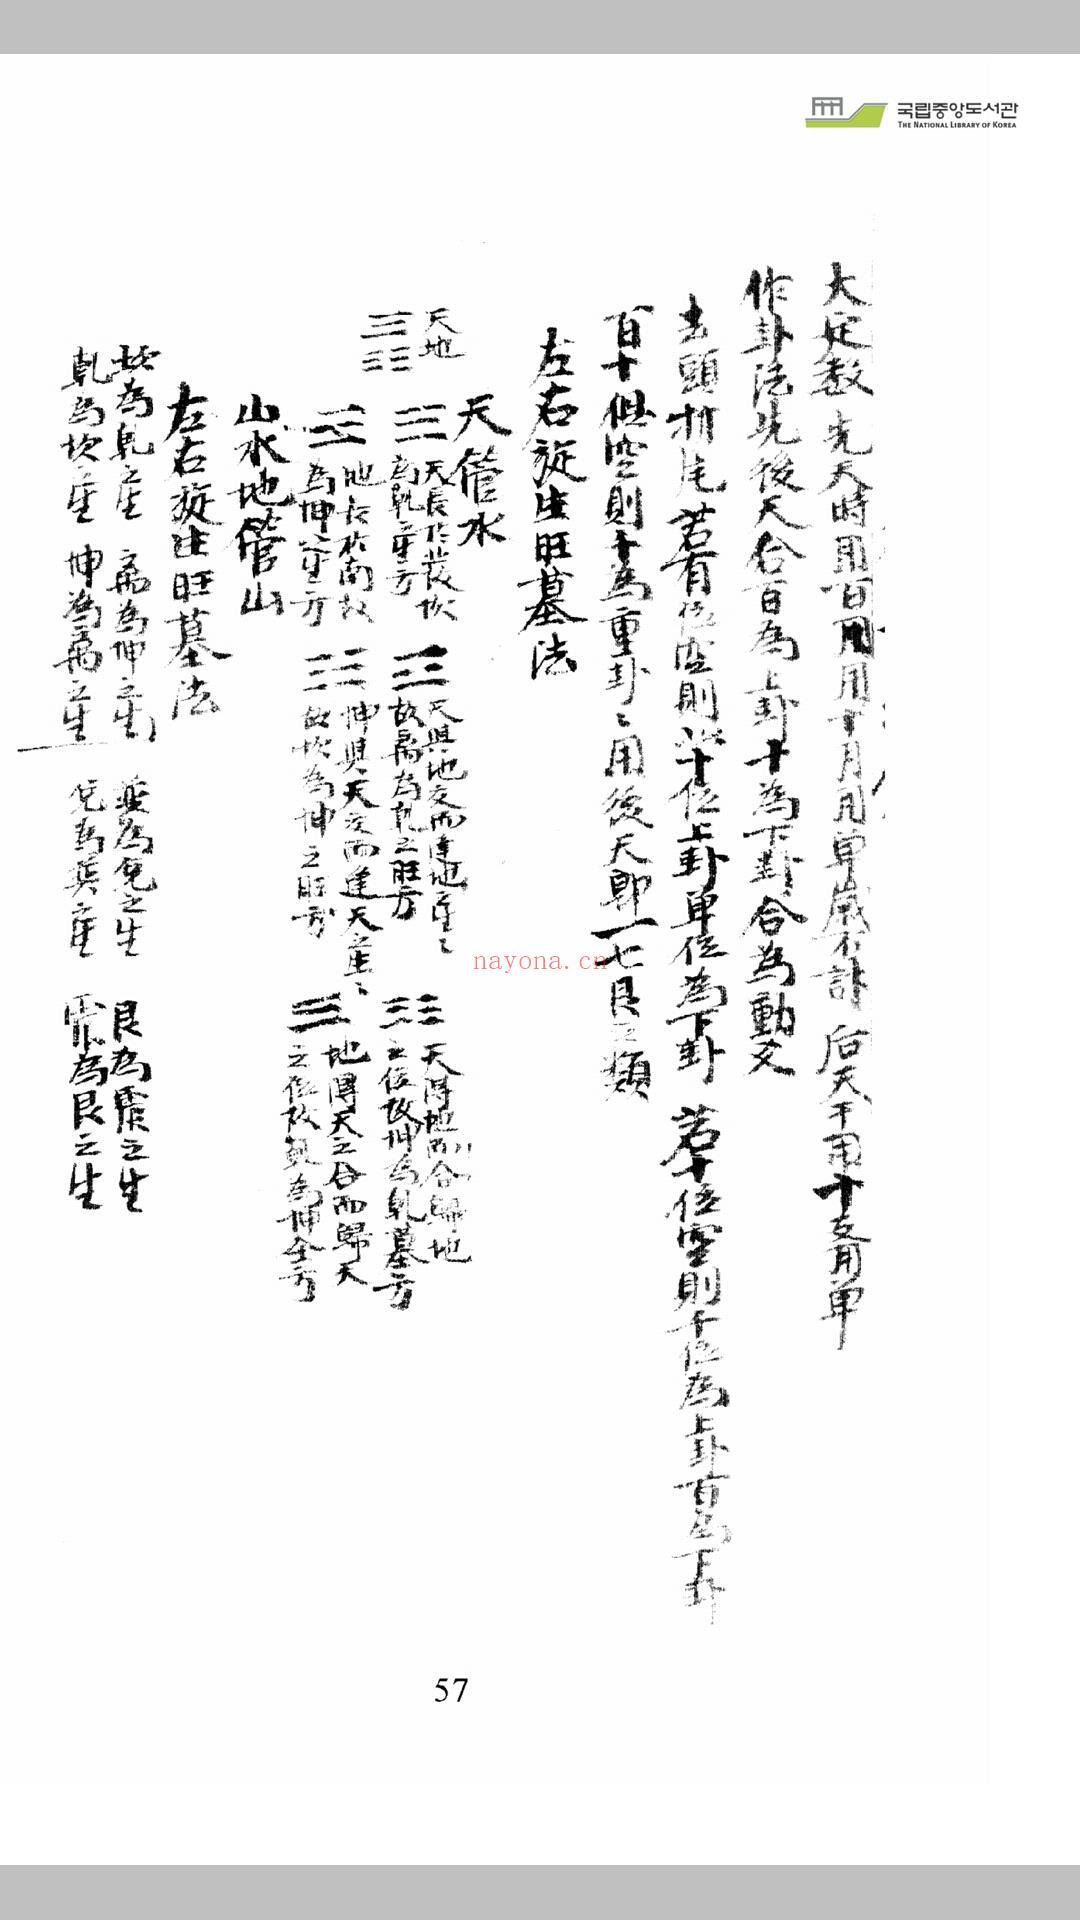 국립중앙도서관
THE NATIONAL LIBRARY OF KOREA
大定数 先天時用百日用用十月用單歲不計 后天干用十支用單
作卦法先後天合百為上卦十為下卦合為動爻
去頭折尾若有位空則以十位上卦單位為下卦 若十位空則千位為上卦百為下卦
百十俱空則十為重卦〻用後天即一七艮之類
左右旋生旺墓法
天地
天管水
天長於
為乾之生方
地長於南故
為坤之生方
天與地交而逢地之產〻
故离為乾之旺方
坤與天交而逢天之產〻
故坎為坤之旺方
天得地而合歸地
之位故坤為乾墓方
地得天之合而歸天
之位故乾為坤全方
山水地管山
左右旋生旺墓法
坎為乾之生 离為坤之生 巽為兌之生 艮為震之生
乾為坎之生 坤為离之生 兌為巽之生 震為艮之生
nayona.cn
57